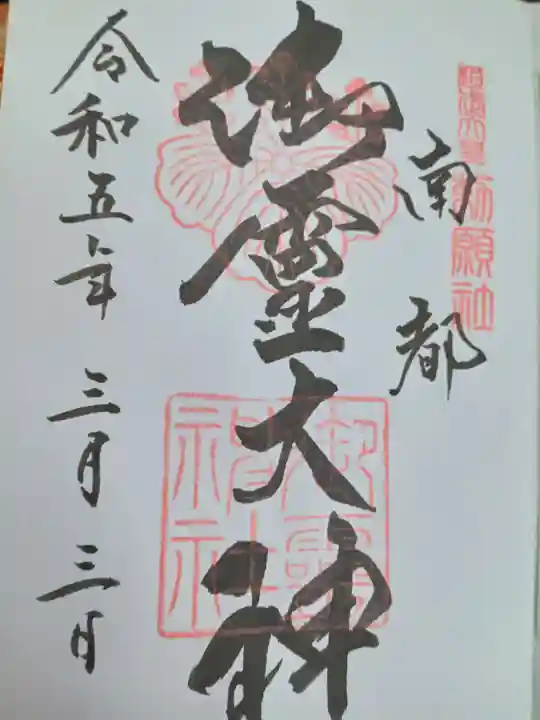 勅願社
南都
御靈大神
御靈神社
令和五年 三月 三日